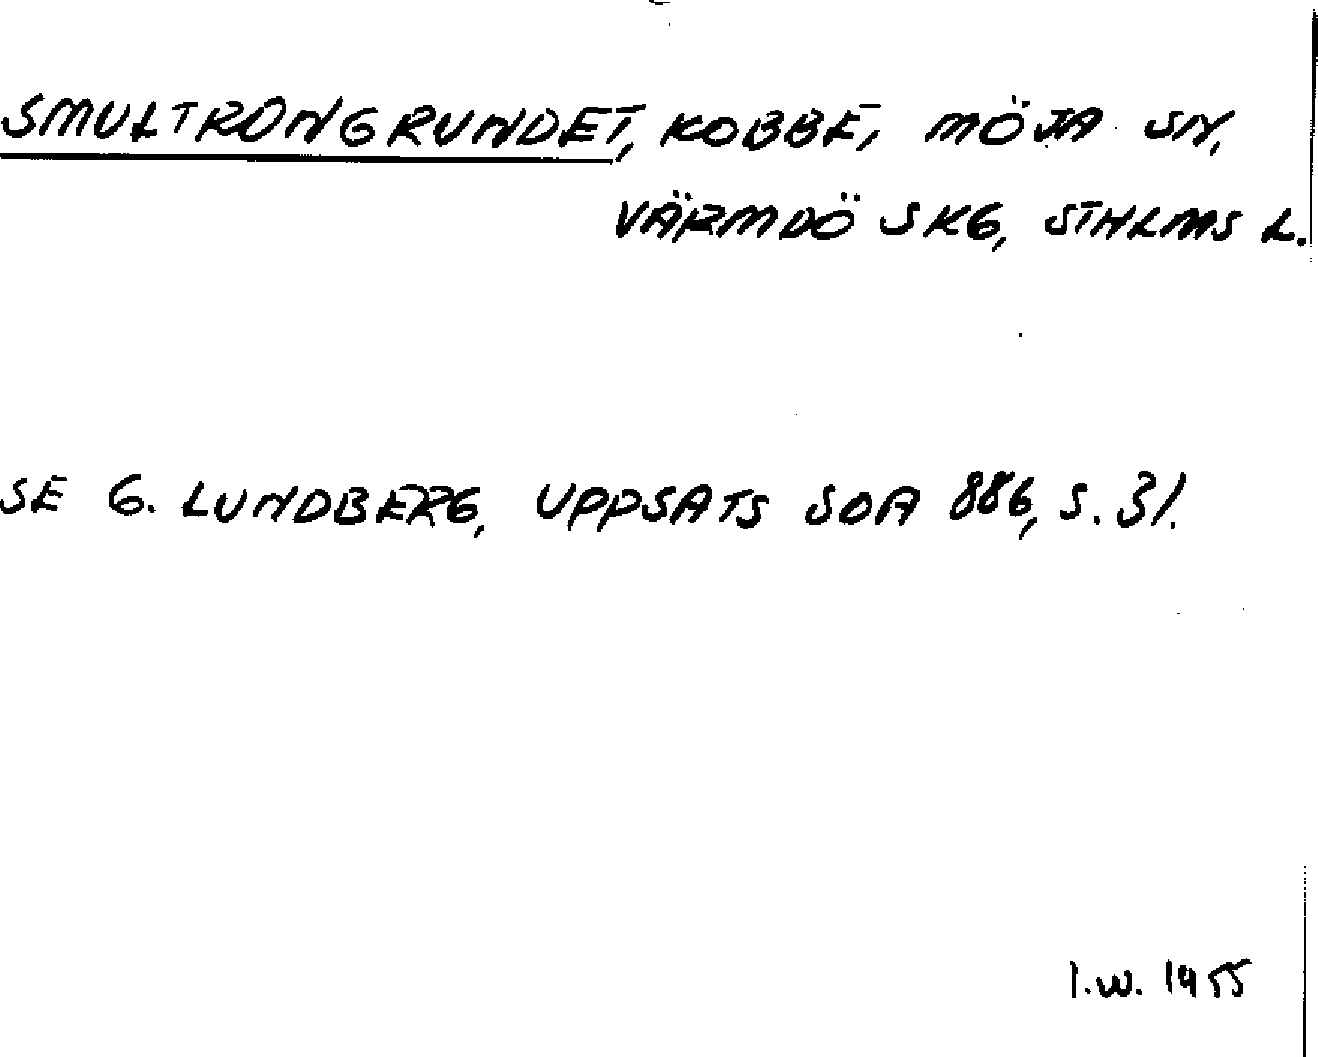 SMULTRONGRUNDET, KOBBE, MÖJA SN,
VÄRMDÖ SKG, STHLMS L.
SE G. LUNDBERG, UPPSATS SOA 886, S. 31.
I.W. 1955